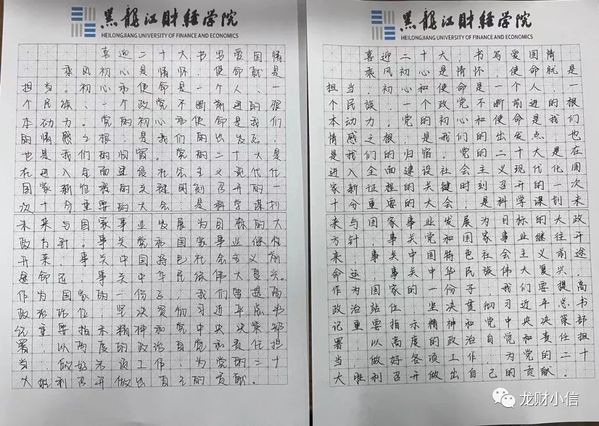 黑龍江財經學院
HEILONGJIANG UNIVERSITY OF FINANCE AND ECONOMICS
喜迎二十大,书写爱国情
乘风初心是情怀,使命就是
担当。初心和使命是一个人、一
个民族、一个政党不断前进的根
本动力。党的初心和使命是我们
的情感之根,是我们的出发点,
也是我们的归宿。党的二十大是
在进入全面建设社会主义现代化
国家新征程的关键时刻召开的一
次十分重要的大会,是科学谋划
未来与国家事业发展为目标的大
政方针,事关党和国家事业继往
开来,事关中国特色社会主义前
途命运,事关中华民族伟大复兴。
作为国家的一份子,我们要提高
政治站位,坚决贯彻习近平总书
记重要指示精神和党中央决策部
署,以高度的政治自觉和责任担
当,做好各项工作,为党的二十
大胜利召开做出自己的贡献。
黑龍江財經學院
HEILONGJIANG UNIVERSITY OF FINANCE AND ECONOMICS
喜迎二十大,书写爱国情
乘风初心是情怀,使命就是
担当。初心和使命是一个人、一
个民族、一个政党不断前进的根
本动力,党的初心和使命是我们
情感之根,是我们的出发点,也
是我们的归宿。党的二十大是在
进入全面建设社会主义现代化国
家新征程的关键时刻召开的一次
十分重要的大会,是科学谋划未
来与国家事业发展为目标的大政
方针,事关党和国家事业继往开
来,事关中国特色社会主义前途
命运,事关中华民族伟大复兴,
作为国家的一份子,我们要提高
政治站位,坚决贯彻习近平总书
记重要指示精神和党中央决策部
署,以高度的政治自觉和责任担
当,做好各项工作,为党的二十
大胜利召开做出自己的贡献。
龙财小信